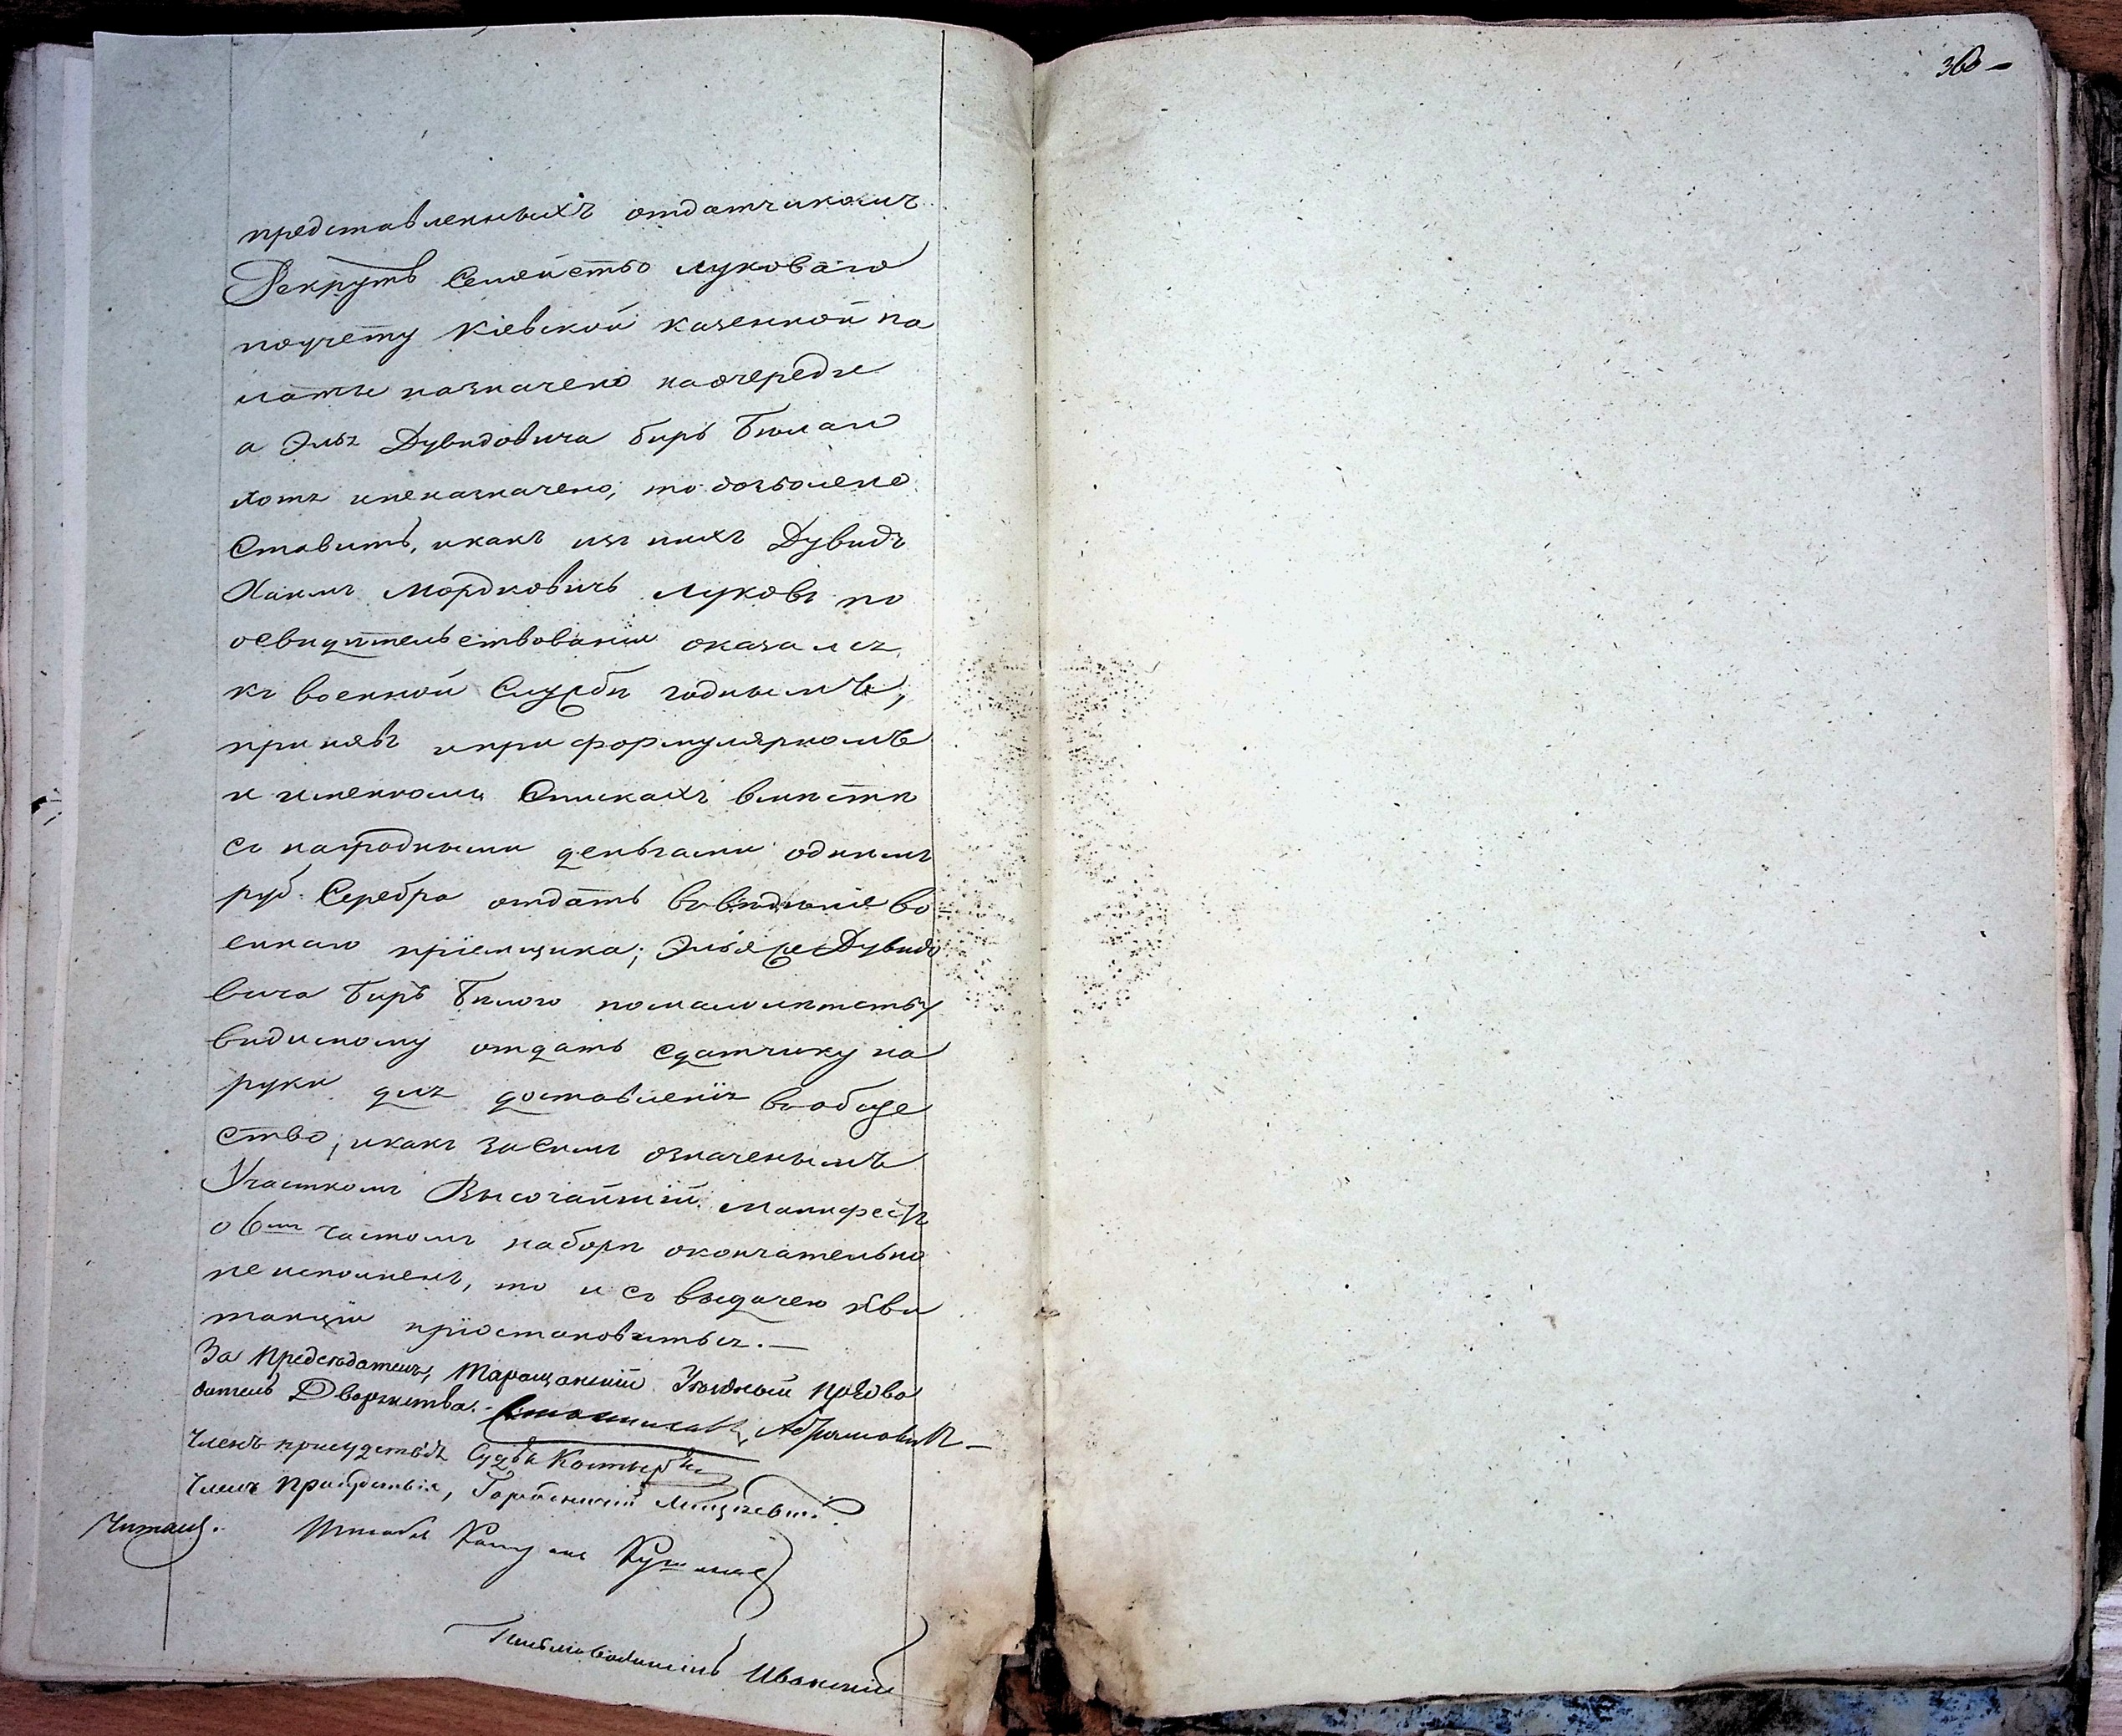 360 –
представленныхъ отдатчикомъ
Рекрутъ Семейство Луковаго
поучету Кіевской казенной па
латы назначено наочереди
а Эль Дувидовича биръ Билаго
хотя иненазначено, то дозволено
Ставить, икакъ изъ нихъ Дувидъ
Хаимъ Мордковичъ Луковъ по
освидѣтельствованіи оказался
къ военной Службѣ годнымъ,
принявъ ипри формулярномъ
и именномъ Спискахъ вмѣстѣ
съ наградными деньгами однимъ
руб. Серебра отдать въвѣденіе во=
еннаго пріемщика; Эльяже Дувидо
вича Биръ Билого помалолѣтству
видимому отдать сдатчику на
руки для доставленія вообще
ство; икакъ засимъ означенымъ
Участкомъ Высочайшій Манифестъ
о 6мъ частомъ наборѣ окончательно
неисполненъ, то и съ выдачею кви
танціи пріостановиться. —
За Председателя, Таращанскій Уѣздный Предво
дитель Дворянства.
Членъ присудствія Судья
Членъ Присудствія,
Читалъ.
Иванскій